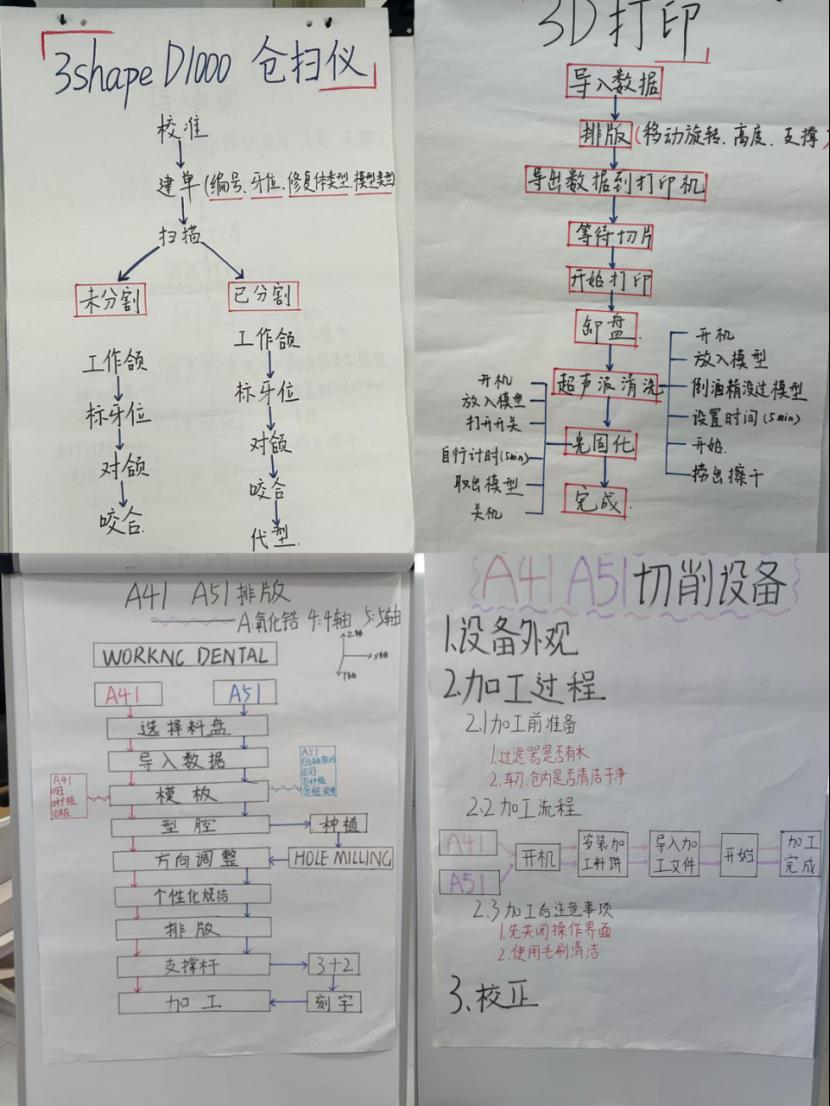 3shape D1000 仓扫仪
校准
建单(编号、牙位、修复体类型、模型类型)
扫描
未分割
已分割
工作颌
标牙位
对颌
咬合
工作颌
标牙位
对颌
咬合
代型
3D打印
导入数据
排版(移动旋转、高度、支撑)
导出数据到打印机
等待切片
开始打印
卸盘
超声波清洗
光固化
完成
开机
放入模型
打开开关
自行计时(5min)
取出模型
关机
开机
放入模型
倒酒精没过模型
设置时间(5min)
开始
捞出擦干
A41 A51排版
A:氧化锆 4:4轴 5:5轴
WORKNC DENTAL
Z轴
X轴
Y轴
A41
A51
选择料盘
导入数据
A41
A51
模板
型腔
种植
方向调整
HOLE MILLING
个性化烧结
排版
支撑杆
3+2
加工
刻字
A41 A51切削设备
1.设备外观
2.加工过程
2.1加工前准备
1.过滤器是否有水
2.车刀、仓内是否清洁干净
2.2加工流程
A41
A51
开机
安装加工料饼
导入加工文件
开始
加工完成
2.3加工后注意事项
1.先关闭操作界面
2.使用毛刷清洁
3.校正